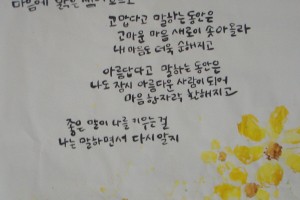 고맙다고 말하는 동안은
고마운 마음 새로이 솟아올라
내 마음도 더욱 순해지고
아름답다고 말하는 동안은
나도 잠시 아름다운 사람이 되어
마음 한 자락 환해지고
좋은 말이 나를 키우는 걸
나는 말하면서 다시 알지